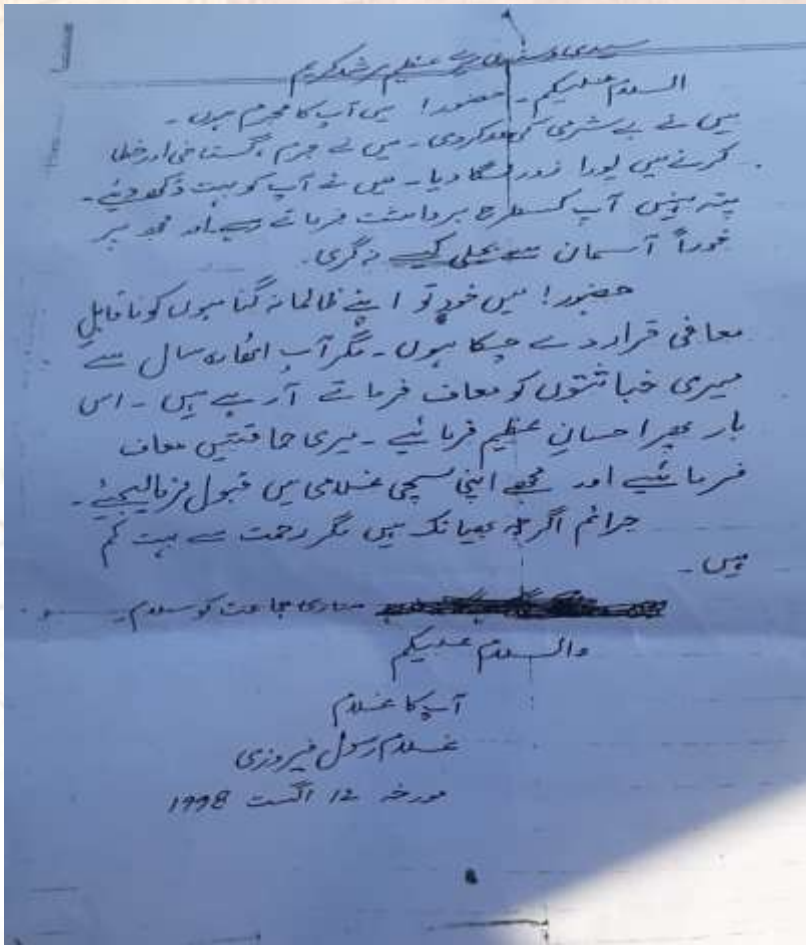 سیدی و سندی میرے عظیم مرشد کریم
السلام علیکم۔ حضور! میں آپ کا مجرم ہوں۔
میں نے بے شرمی کی حد کر دی۔ میں نے جرم، گستاخی اور خطا
کرنے میں پورا زور لگا دیا۔ میں نے آپ کو بہت دکھ دیئے۔
پتہ نہیں آپ کس طرح برداشت فرماتے رہے اور مجھ پر
فوراً آسمان سے بجلی کیسے نہ گری۔
حضور! میں خود تو اپنے ظالمانہ گناہوں کو ناقابلِ
معافی قرار دے چکا ہوں۔ مگر آپ اٹھارہ سال سے
میری خباثتوں کو معاف فرماتے آ رہے ہیں۔ اس
بار پھر احسانِ عظیم فرمائیے۔ میری حماقتیں معاف
فرمائیے اور مجھے اپنی سچی غلامی میں قبول فرما لیجئے۔
جرائم اگرچہ بھیانک ہیں مگر رحمت سے بہت کم
ہیں۔
ساری جماعت کو سلام۔
والسلام علیکم
آپ کا غلام
غلام رسول فیروزی
مورخہ 12 اگست 1998